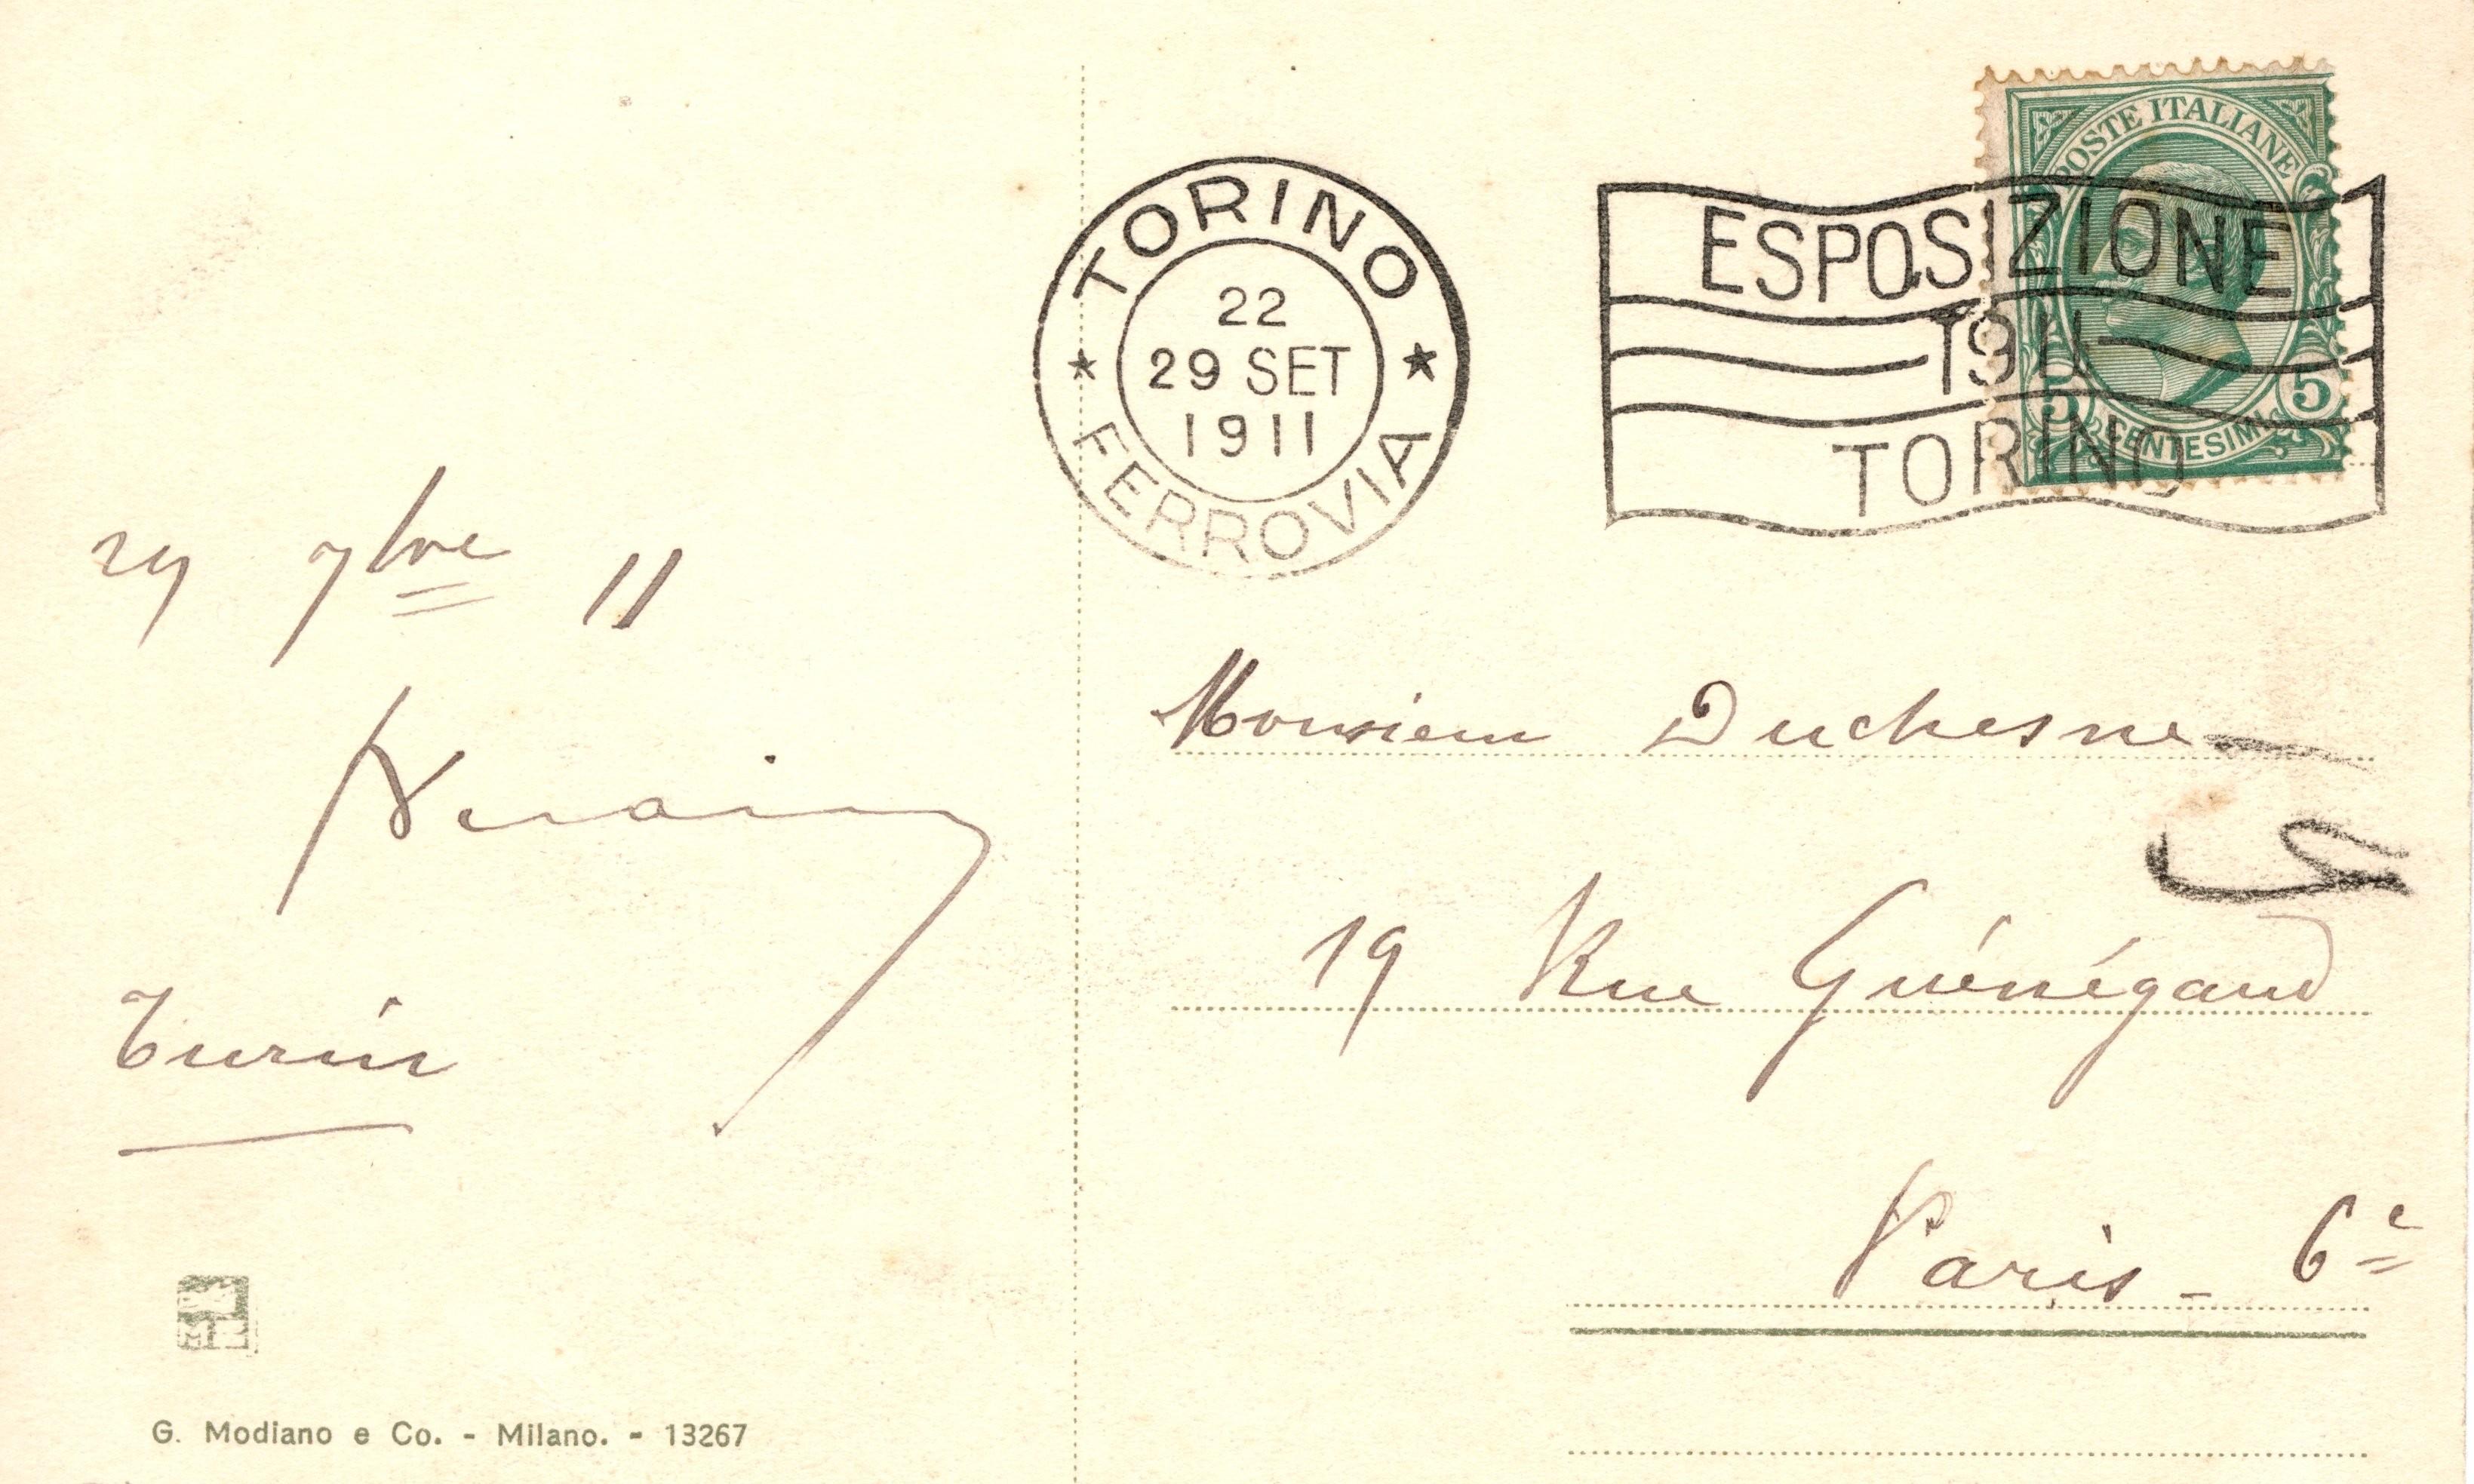 TORINO
22
29 SET
1911
FERROVIA
ESPOSIZIONE
1911
TORINO
POSTE ITALIANE
5 5
CENTESIMI
29 7bre 11
Turin
Monsieur Duchesne
19 Rue Guénégaud
Paris - 6e
G. Modiano e Co. - Milano. - 13267